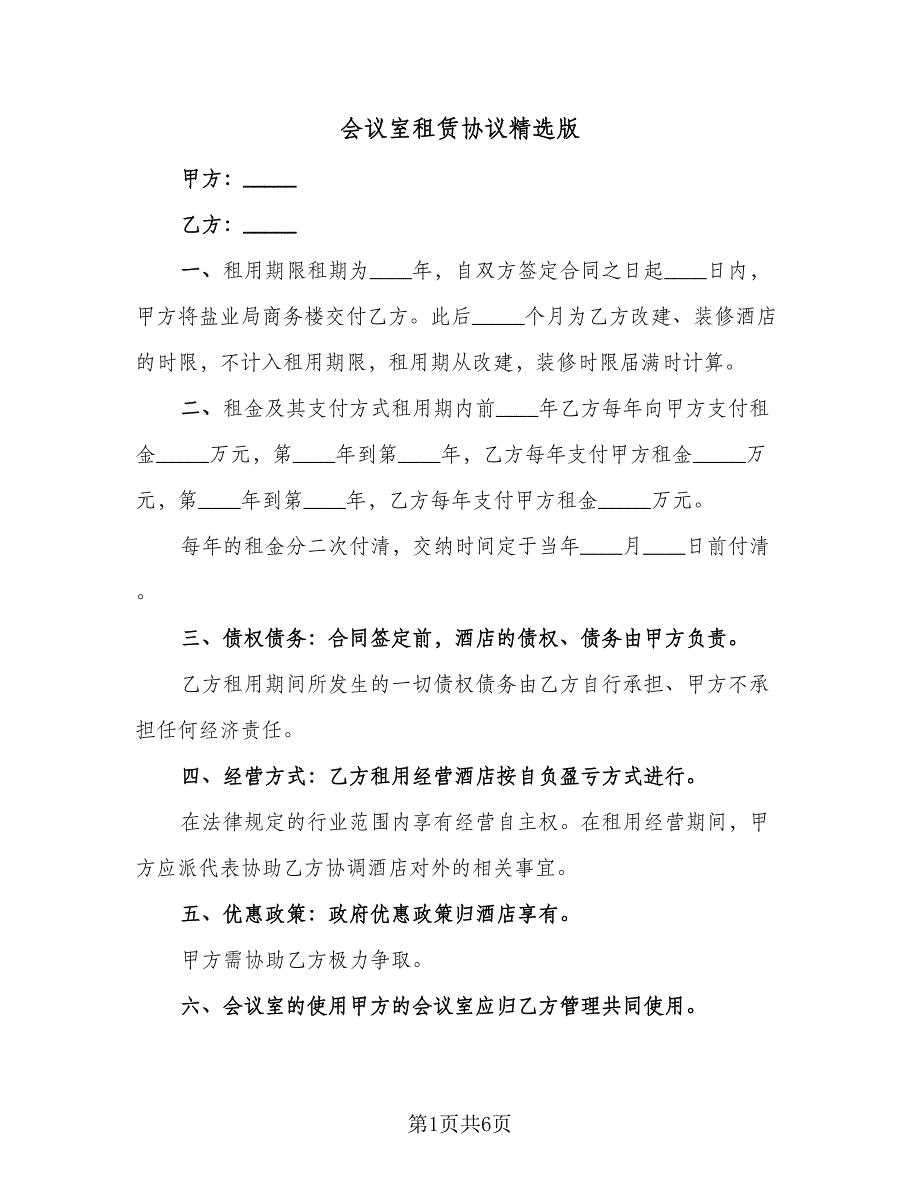 会议室租赁协议精选版
甲方：_____
乙方：_____
一、租用期限租期为____年，自双方签定合同之日起____日内，
甲方将盐业局商务楼交付乙方。此后_____个月为乙方改建、装修酒店
的时限，不计入租用期限，租用期从改建，装修时限届满时计算。
二、租金及其支付方式租用期内前____年乙方每年向甲方支付租
金_____万元，第____年到第____年，乙方每年支付甲方租金_____万
元，第____年到第____年，乙方每年支付甲方租金_____万元。
每年的租金分二次付清，交纳时间定于当年____月____日前付清
。
三、债权债务：合同签定前，酒店的债权、债务由甲方负责。
乙方租用期间所发生的一切债权债务由乙方自行承担、甲方不承
担任何经济责任。
四、经营方式：乙方租用经营酒店按自负盈亏方式进行。
在法律规定的行业范围内享有经营自主权。在租用经营期间，甲
方应派代表协助乙方协调酒店对外的相关事宜。
五、优惠政策：政府优惠政策归酒店享有。
甲方需协助乙方极力争取。
六、会议室的使用甲方的会议室应归乙方管理共同使用。
第1页共6页